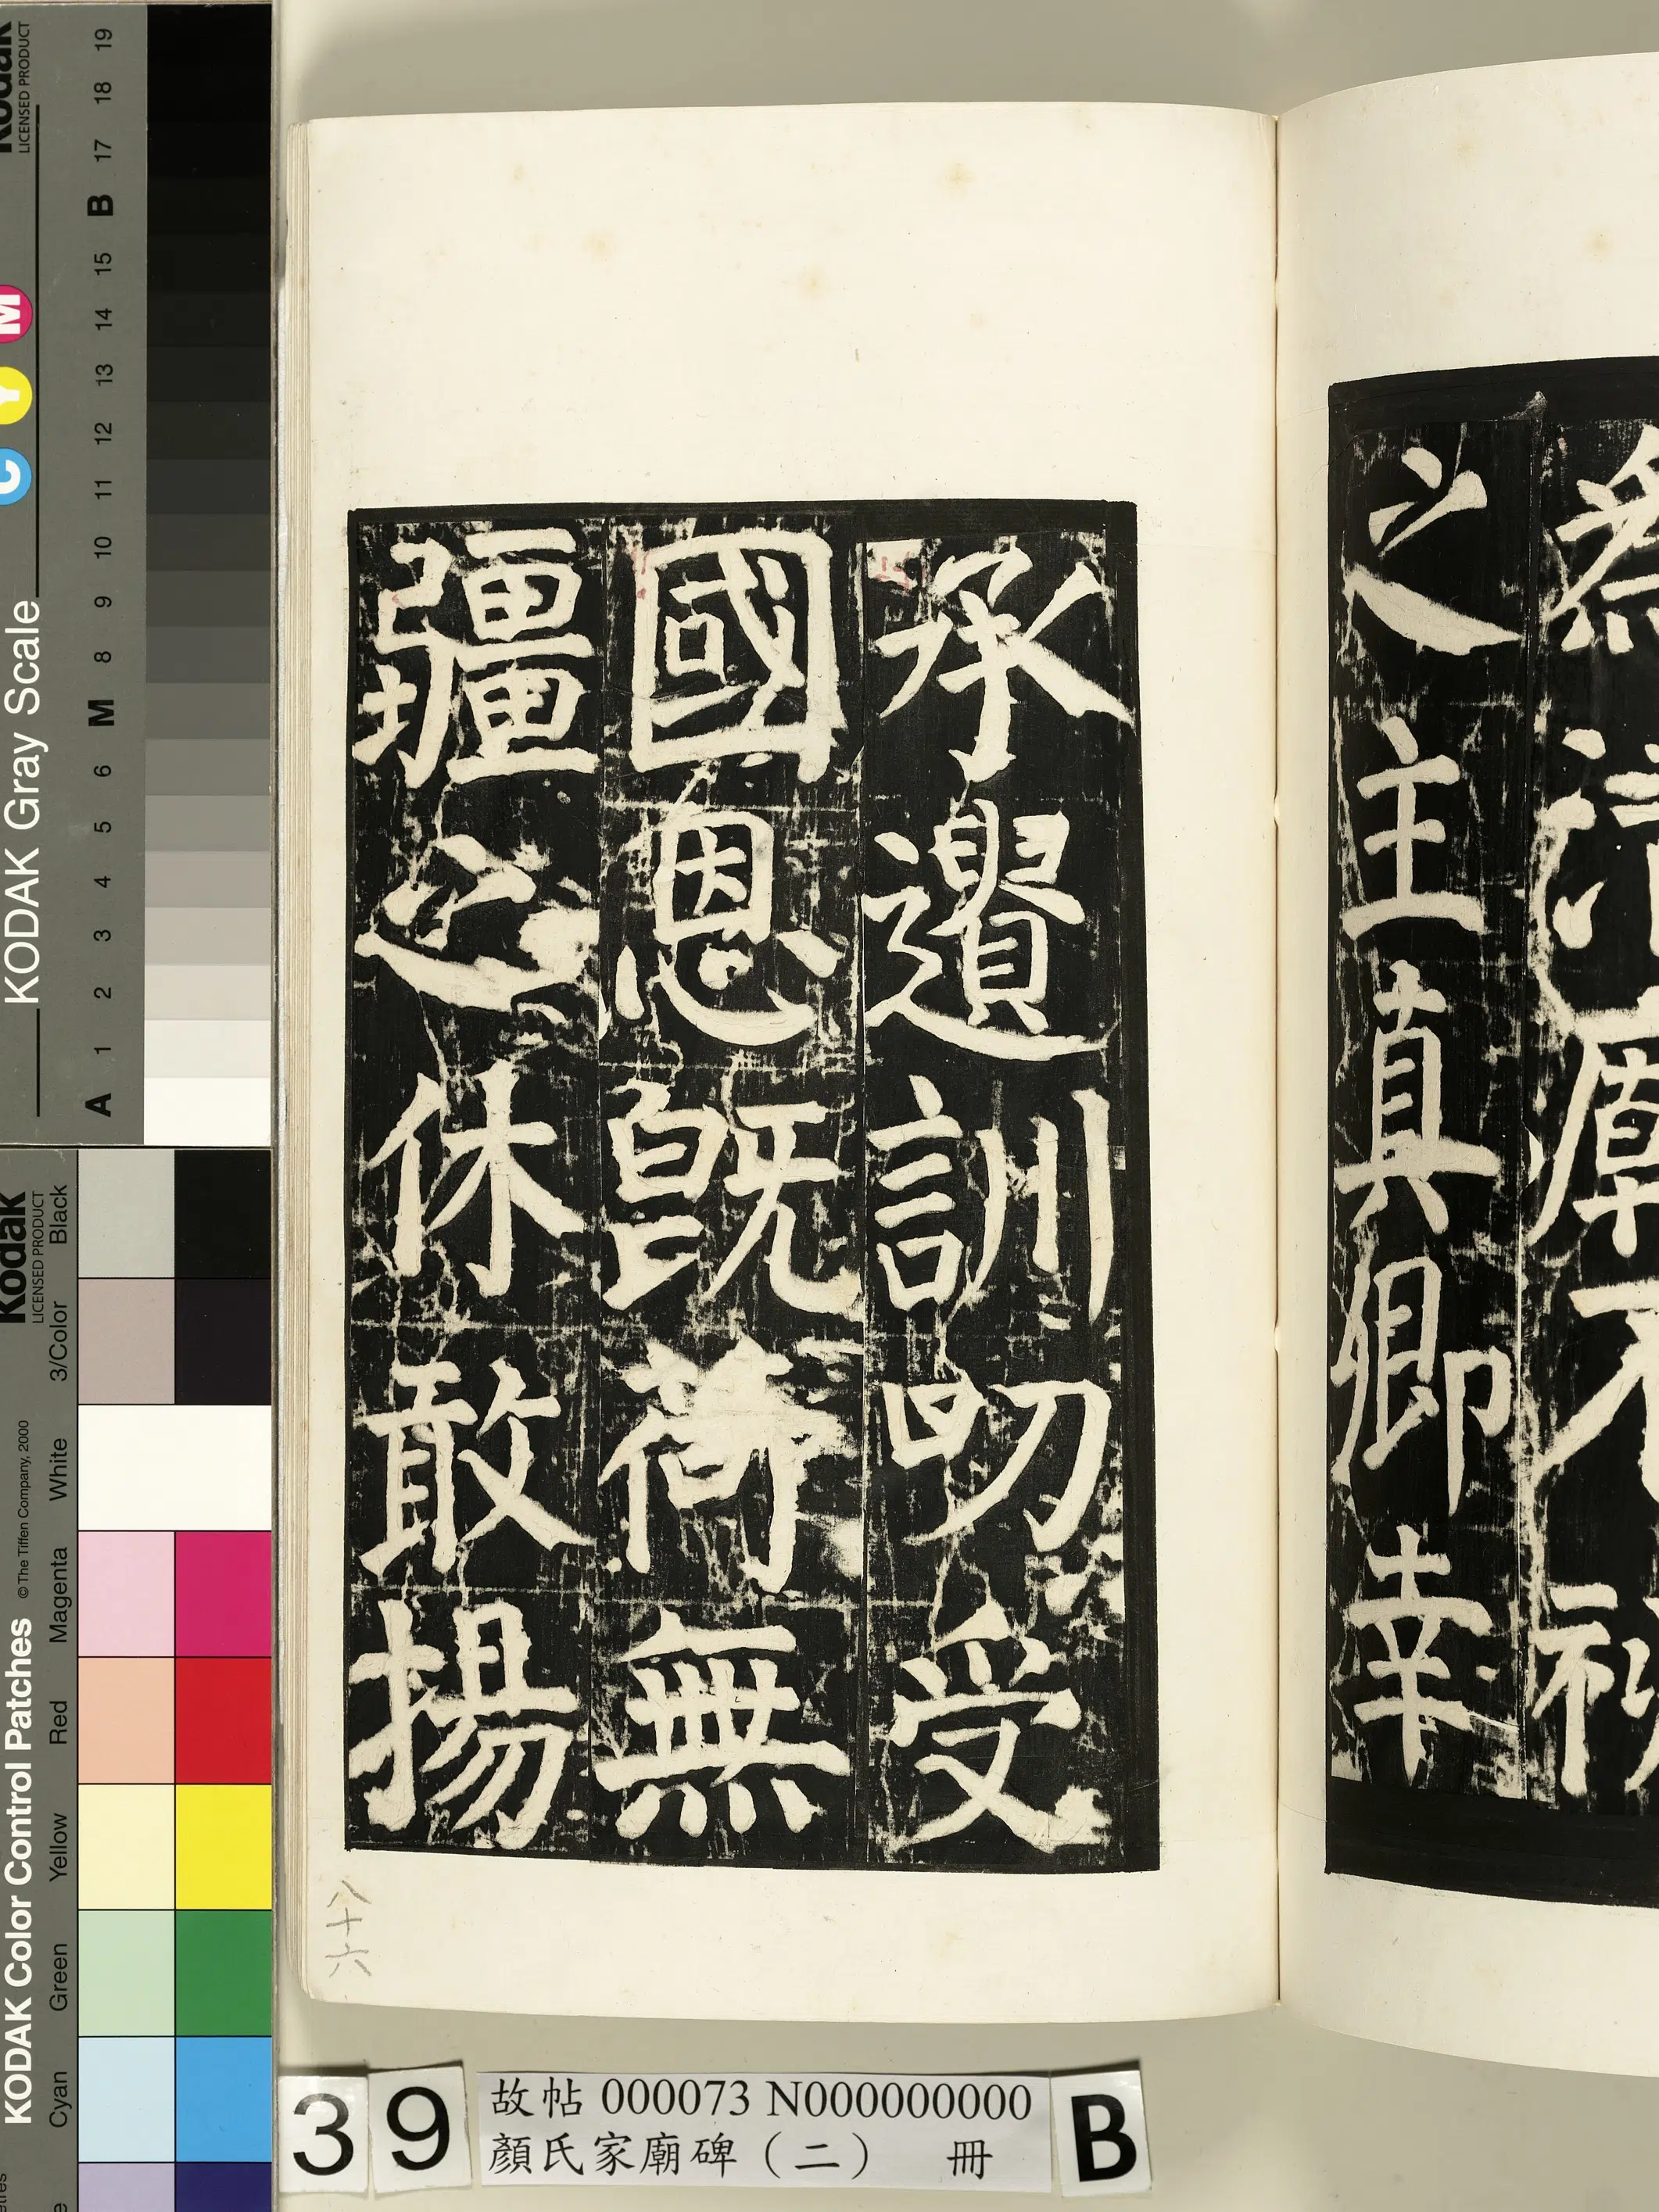 為清廟不祧
之主真卿幸
承遺訓叨受
國恩既荷無
疆之休敢揚
八十六
39
故帖 000073 N000000000
顏氏家廟碑（二） 冊
B
Kodak
LICENSED PRODUCT
KODAK Gray Scale
C Y M
A 1 2 3 4 5 6 M 8 9 10 11 12 13 14 15 B 17 18 19
Kodak
LICENSED PRODUCT
KODAK Color Control Patches
© The Tiffen Company, 2000
Cyan Green Yellow Red Magenta White 3/Color Black